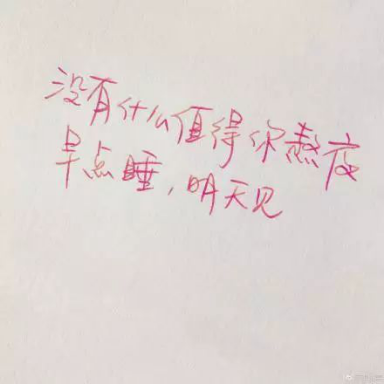 没有什么值得你熬夜
早点睡，明天见